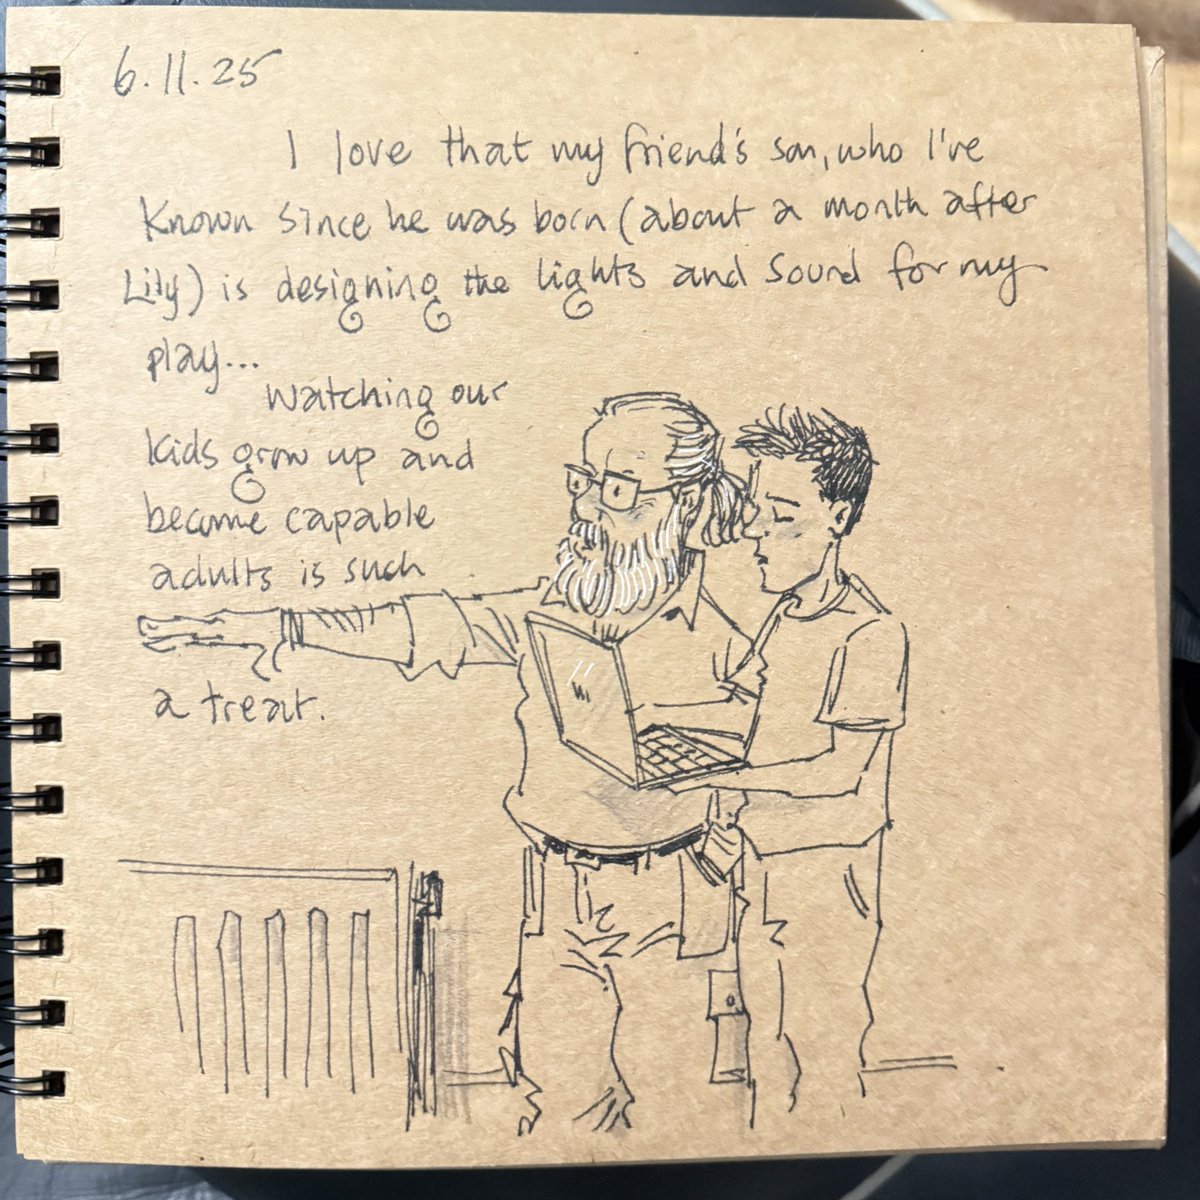 6.11.25
I love that my friend's son, who I've
known since he was born (about a month after
Lily) is designing the lights and sound for my
play...
Watching our
kids grow up and
become capable
adults is such
a treat.